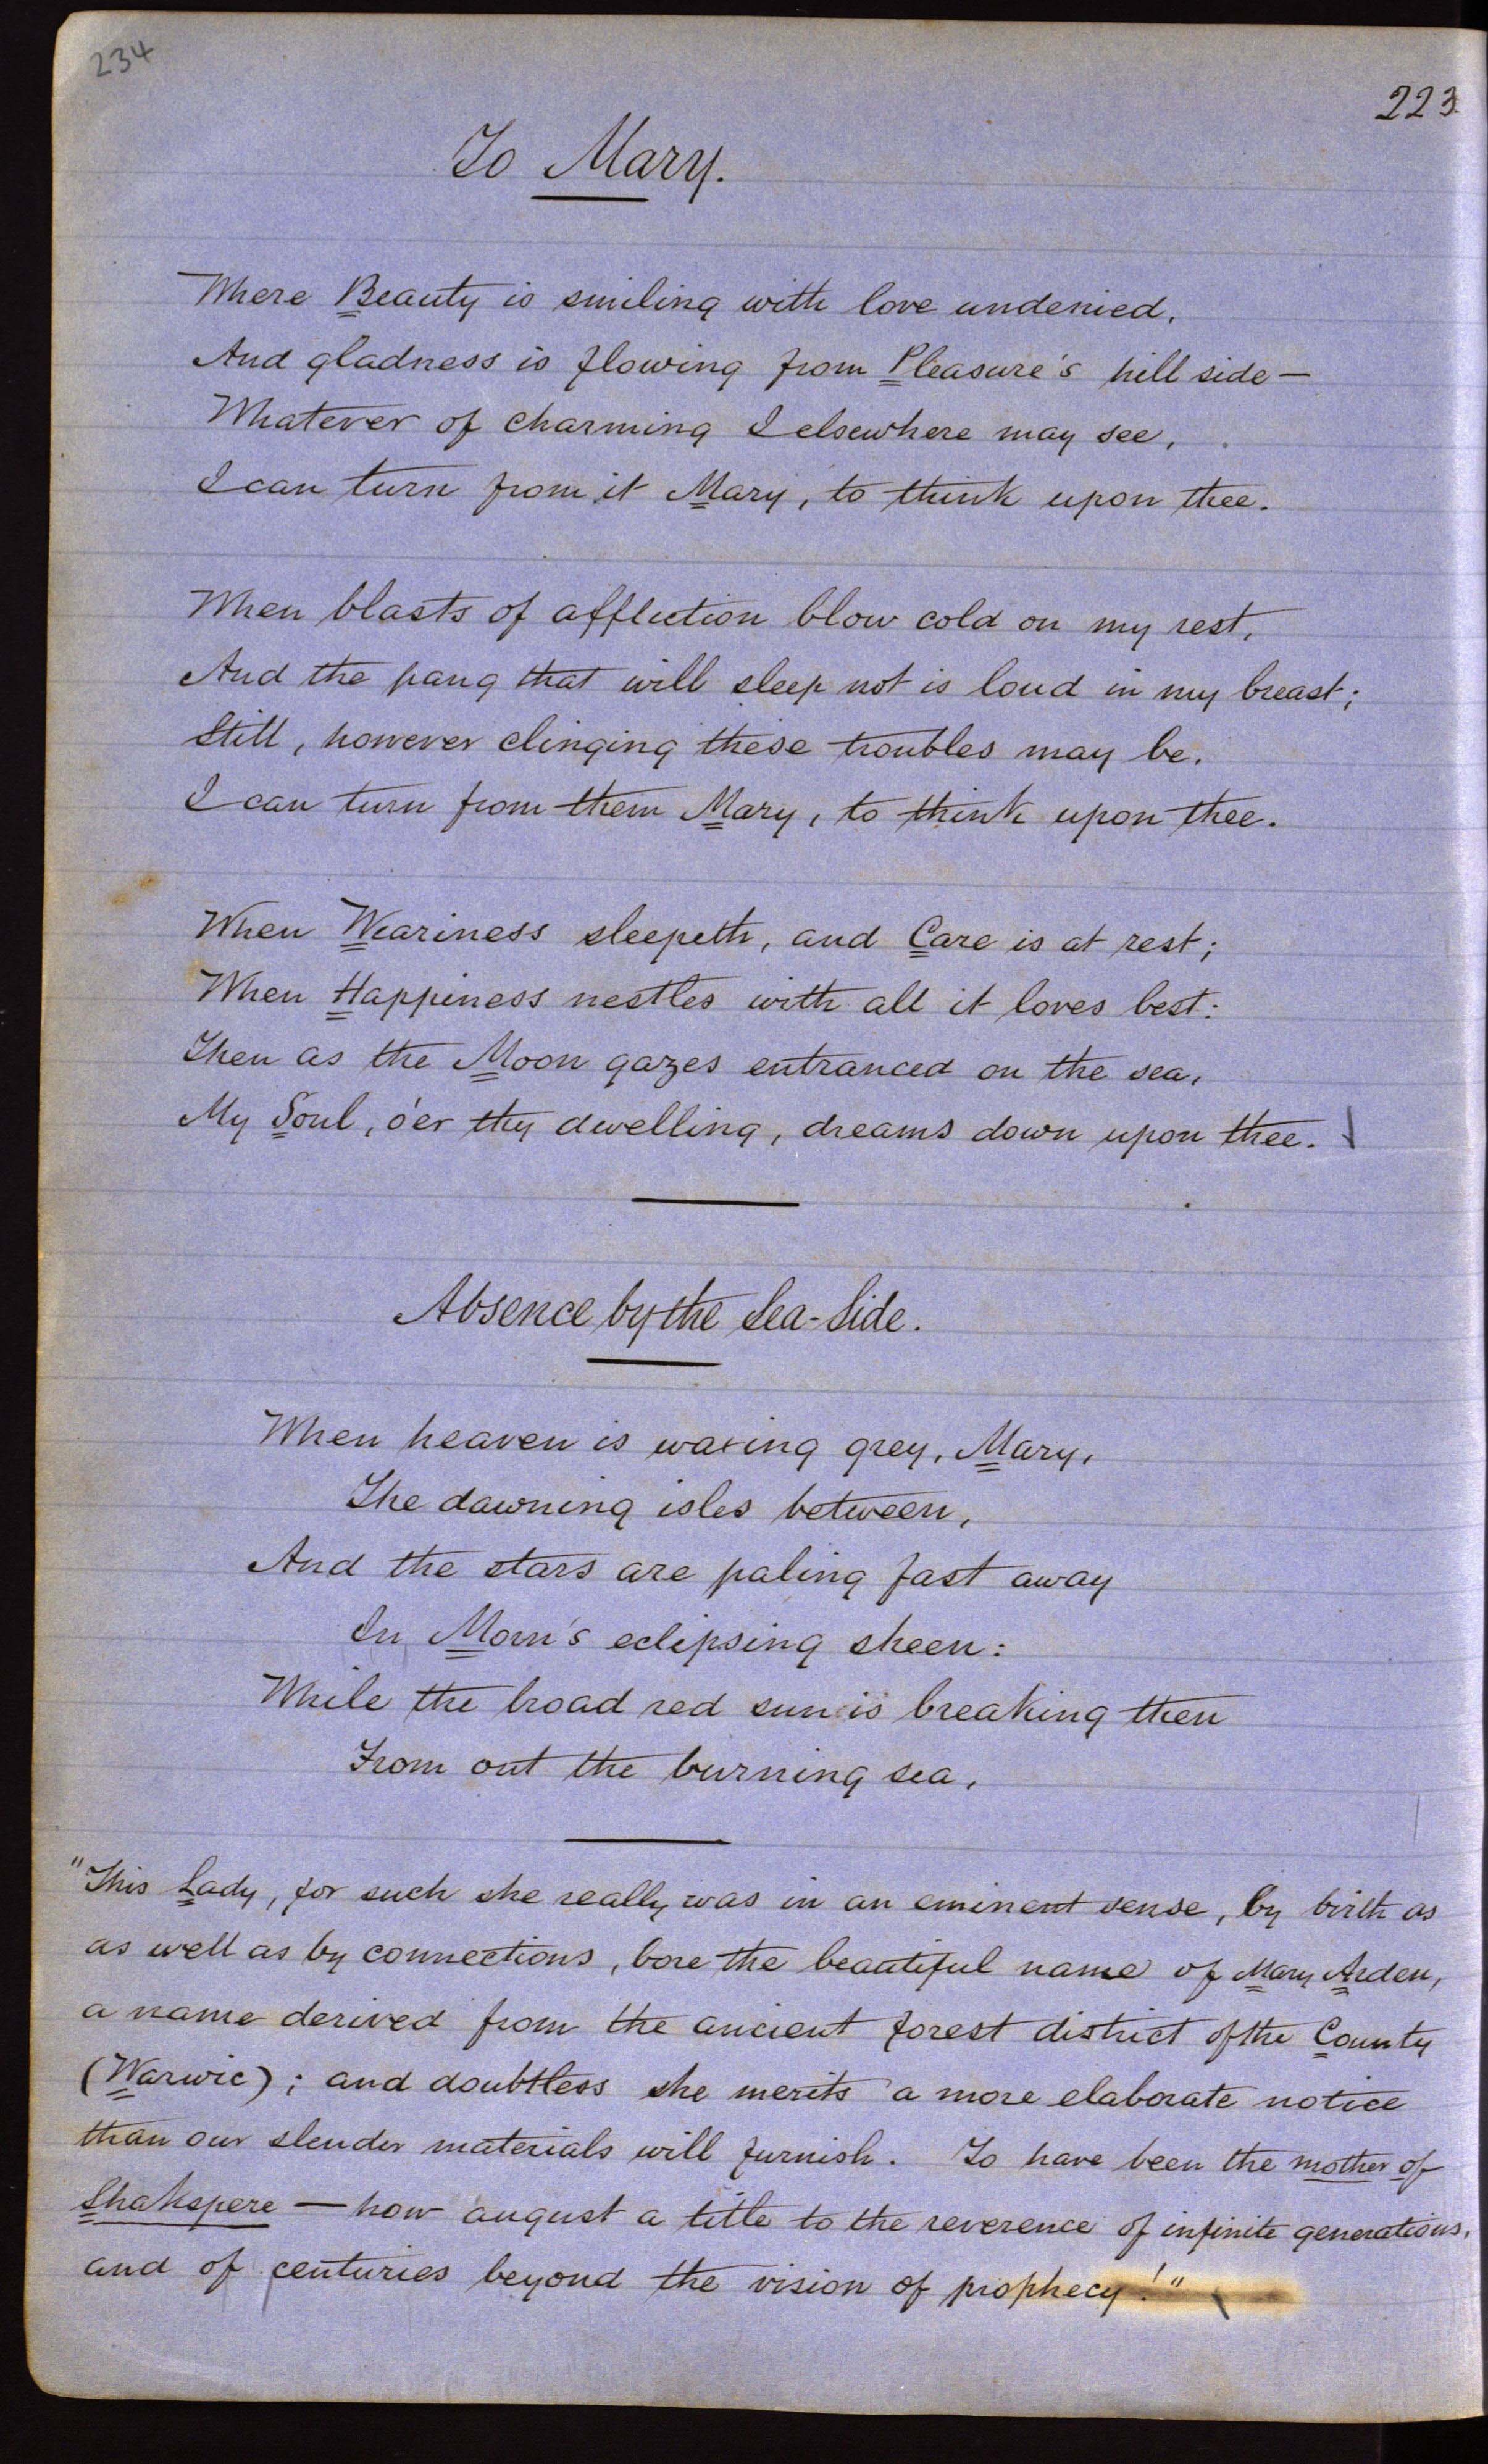 234
223
To Mary.
Where Beauty is smiling with love undenied,
And gladness is flowing from Pleasure's hill side —
Whatever of charming I elsewhere may see,
I can turn from it Mary, to think upon thee.
When blasts of affliction blow cold on my rest,
And the pang that will sleep not is loud in my breast;
Still, however clinging these troubles may be,
I can turn from them Mary, to think upon thee.
When Weariness sleepeth, and Care is at rest;
When Happiness nestles with all it loves best:
Then as the Moon gazes entranced on the sea,
My Soul, o'er thy dwelling, dreams down upon thee.
Absence by the Sea-Side.
When heaven is waxing grey, Mary,
The dawning isles between,
And the stars are paling fast away
In Morn's eclipsing sheen:
While the broad red sun is breaking then
From out the burning sea,
"This Lady, for such she really was in an eminent sense, by birth as
as well as by connections, bore the beautiful name of Mary Arden,
a name derived from the ancient forest district of the County
(Warwic); and doubtless she merits a more elaborate notice
than our slender materials will furnish. To have been the mother of
Shakspere — how august a title to the reverence of infinite generations,
and of centuries beyond the vision of prophecy!"